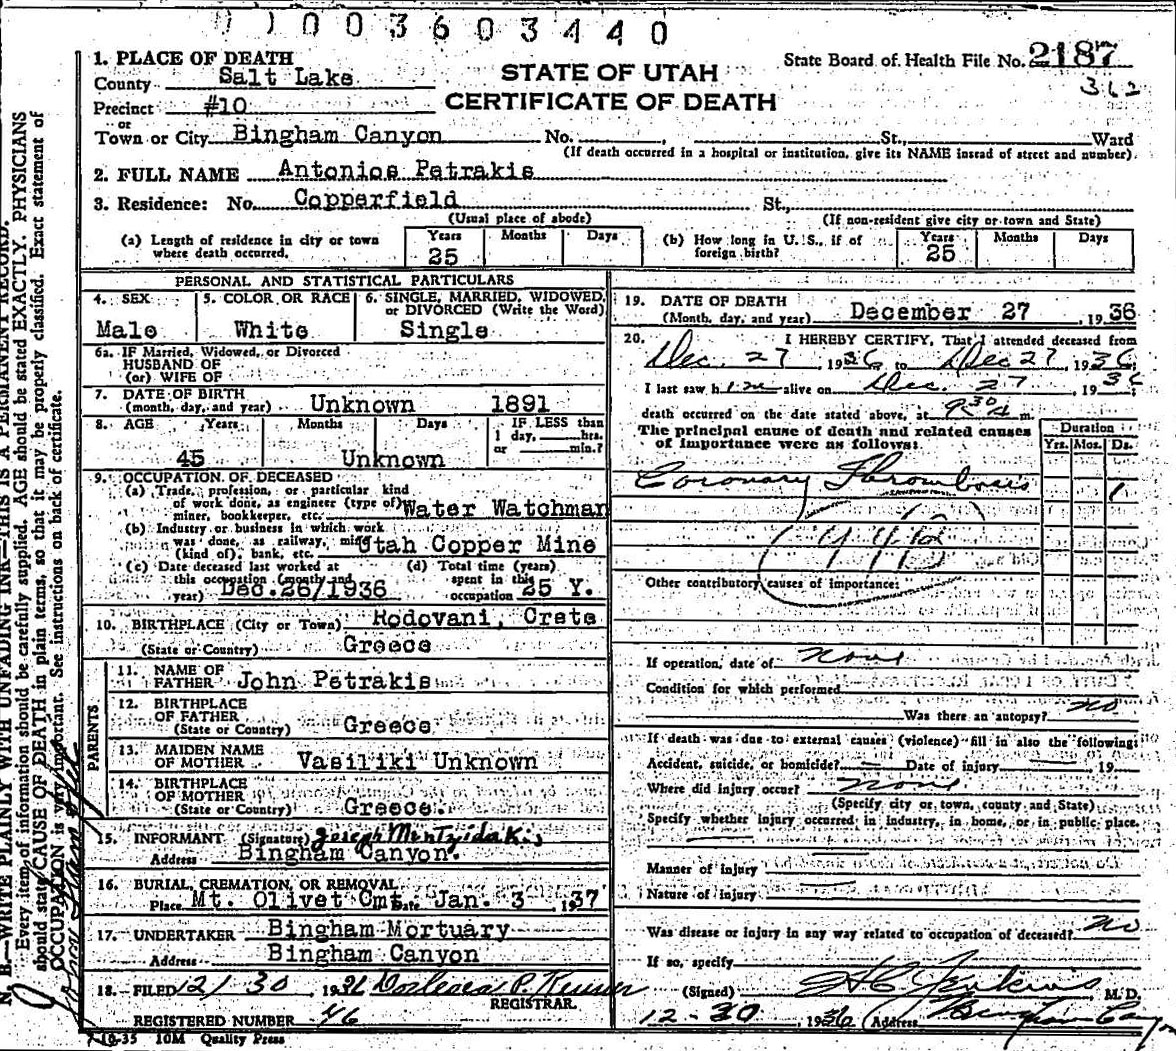 0 0 3 6 0 3 4 4 0
State Board of Health File No. 2187
362
STATE OF UTAH
CERTIFICATE OF DEATH
1. PLACE OF DEATH
County Salt Lake
Precinct #10
or
Town or City Bingham Canyon No. St., Ward
(If death occurred in a hospital or institution, give its NAME instead of street and number).
2. FULL NAME Antonios Petrakis
3. Residence: No. Copperfield St.,
(Usual place of abode) (If non-resident give city or town and State)
(a) Length of residence in city or town where death occurred. Years 25 Months Days
(b) How long in U. S., if of foreign birth? Years 25 Months Days
PERSONAL AND STATISTICAL PARTICULARS
4. SEX Male
5. COLOR OR RACE White
6. SINGLE, MARRIED, WIDOWED, or DIVORCED (Write the Word) Single
6a. IF Married, Widowed, or Divorced
HUSBAND OF
(or) WIFE OF
7. DATE OF BIRTH
(month, day, and year) Unknown 1891
8. AGE Years Months Days IF LESS than
1 day, hrs.
or min.?
45 Unknown
9. OCCUPATION OF DECEASED
(a) Trade, profession, or particular kind
of work done, as engineer (type of)
miner, bookkeeper, etc. Water Watchman
(b) Industry or business in which work
was done, as railway, mine
(kind of), bank, etc. Utah Copper Mine
(c) Date deceased last worked at
this occupation (month and
year) Dec. 26/1936
(d) Total time (years)
spent in this
occupation 25 Y.
10. BIRTHPLACE (City or Town) Rodovani, Crete
(State or Country) Greece
PARENTS
11. NAME OF
FATHER John Petrakis
12. BIRTHPLACE
OF FATHER
(State or Country) Greece
13. MAIDEN NAME
OF MOTHER Vasiliki Unknown
14. BIRTHPLACE
OF MOTHER
(State or Country) Greece.
15. INFORMANT (Signature) Joseph Mintzidakis
Address Bingham Canyon.
16. BURIAL, CREMATION, OR REMOVAL
Place Mt. Olivet Cmt. Date Jan. 3 1937
17. UNDERTAKER Bingham Mortuary
Address Bingham Canyon
18. FILED 12/30 1936
REGISTRAR.
REGISTERED NUMBER 46
7-10-35 10M Quality Press
19. DATE OF DEATH
(Month, day, and year) December 27, 1936
20. I HEREBY CERTIFY, That I attended deceased from
Dec. 27, 1936 to Dec 27, 1936
I last saw him alive on Dec. 27, 1936
death occurred on the date stated above, at 9:30 A m.
The principal cause of death and related causes
of importance were as follows:
Duration
Yrs. Mos. Ds.
Coronary Thrombosis 1
Other contributory causes of importance:
If operation, date of none
Condition for which performed
Was there an autopsy? no
If death was due to external causes (violence) fill in also the following:
Accident, suicide, or homicide? Date of injury 19
Where did injury occur? none
(Specify city or town, county and State)
Specify whether injury occurred in industry, in home, or in public place.
Manner of injury
Nature of injury
Was disease or injury in any way related to occupation of deceased? no
If so, specify
(Signed) H C Jenkins M. D.
12-30, 1936 (Address Bingham Canyon
N. B.—WRITE PLAINLY WITH UNFADING INK—THIS IS A PERMANENT RECORD.
Every item of information should be carefully supplied. AGE should be stated EXACTLY. PHYSICIANS
should state CAUSE OF DEATH in plain terms, so that it may be properly classified. Exact statement of
OCCUPATION is very important. See instructions on back of certificate.